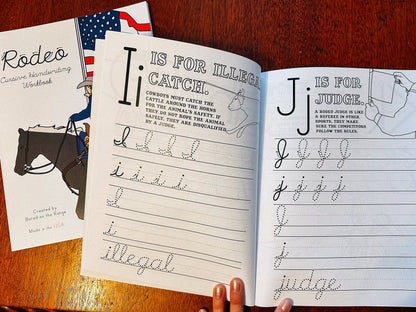 Rodeo
Cursive Handwriting
Workbook
Created by
Bored on the Range
Made in the USA
Ii IS FOR ILLEGAL
CATCH.
COWBOYS MUST CATCH THE
CATTLE AROUND THE HORNS
FOR THE ANIMAL'S SAFETY. IF
THEY DO NOT ROPE THE ANIMAL
SAFELY, THEY ARE DISQUALIFIED
BY A JUDGE.
I I I I
i i i i
I
i
illegal
Jj IS FOR
JUDGE.
A RODEO JUDGE IS LIKE
A REFEREE IN OTHER
SPORTS. THEY MAKE
SURE THE COMPETITORS
FOLLOW THE RULES.
J J J J
j j j j
J
j
judge